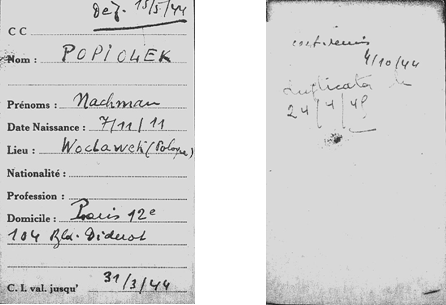 Def. 15/5/44
C C
Nom : POPIOŁEK
Prénoms : Nachman
Date Naissance : 7/11/11
Lieu : Wocławek (Pologne)
Nationalité :
Profession :
Domicile : Paris 12e
104 Bld. Diderot
C. I. val. jusqu' 31/3/44
remis
4/10/44
Duplicata le
24/4/48